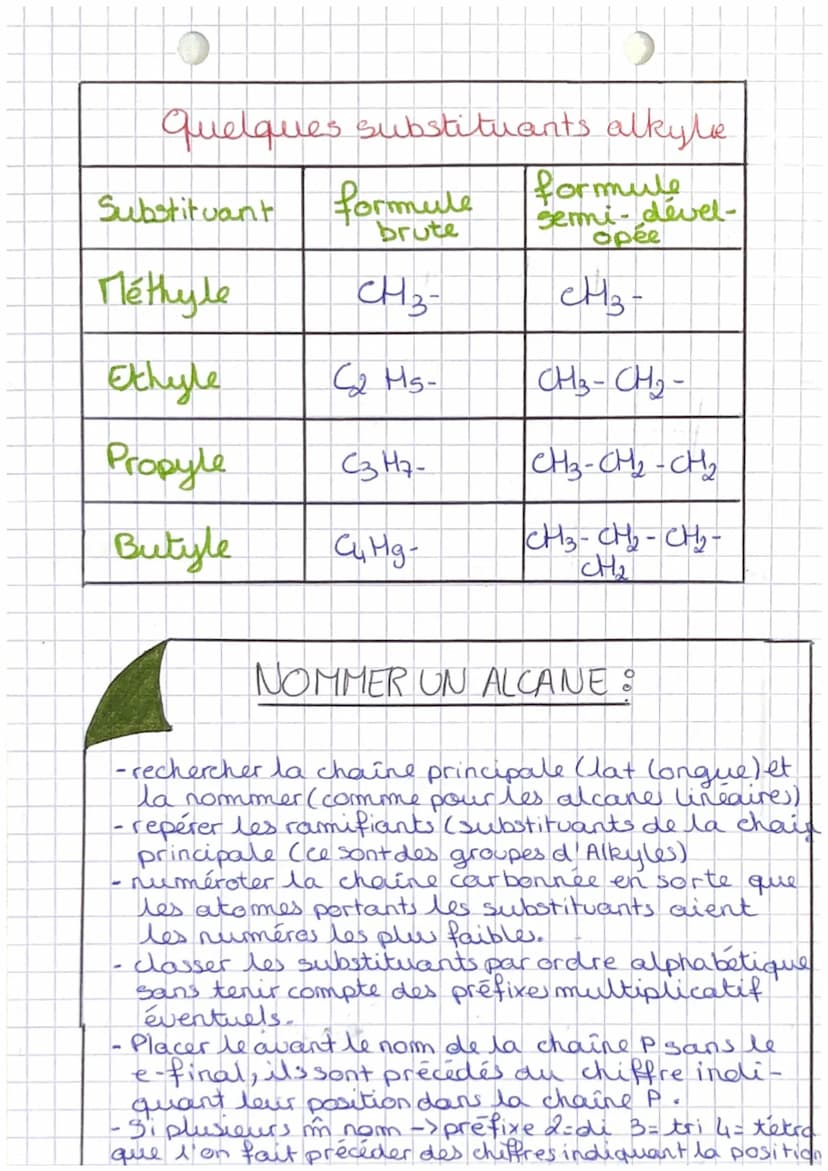 Quelques substituants alkyle
Substituant formule brute formule semi-dével-opée
Méthyle CH3- CH3-
Ethyle C2 H5- CH3-CH2-
Propyle C3H7- CH3-CH2-CH2
Butyle C4H9- CH3-CH2-CH2-
CH2
NOMMER UN ALCANE :
-rechercher la chaîne principale (la+ longue) et
la nommer (comme pour les alcanes linéaires)
-repérer les ramifiants (substituants de la chaîn
principale (ce sont des groupes d'Alkyles)
-numéroter la chaîne carbonnée en sorte que
les atomes portants les substituants aient
les numéros les plus faibles.
-classer les substituants par ordre alphabétique
sans tenir compte des préfixes multiplicatif
éventuels.
-Placer le avant le nom de la chaîne P sans le
e-final, ils sont précédés du chiffre indi-
quant leur position dans la chaîne P.
-Si plusieurs m̂ nom -> préfixe 2=di 3=tri 4=tétra
que l'on fait précéder des chiffres indiquant la position